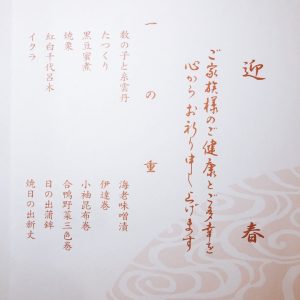 迎春
ご家族様のご健康とご多幸を
心からお祈り申し上げます
一の重
数の子と糸雲丹
たつくり
黒豆蜜煮
焼栗
紅白千代呂木
イクラ
海老味噌漬
伊達巻
小袖昆布巻
合鴨野菜三色巻
日の出蒲鉾
焼目の出新丈